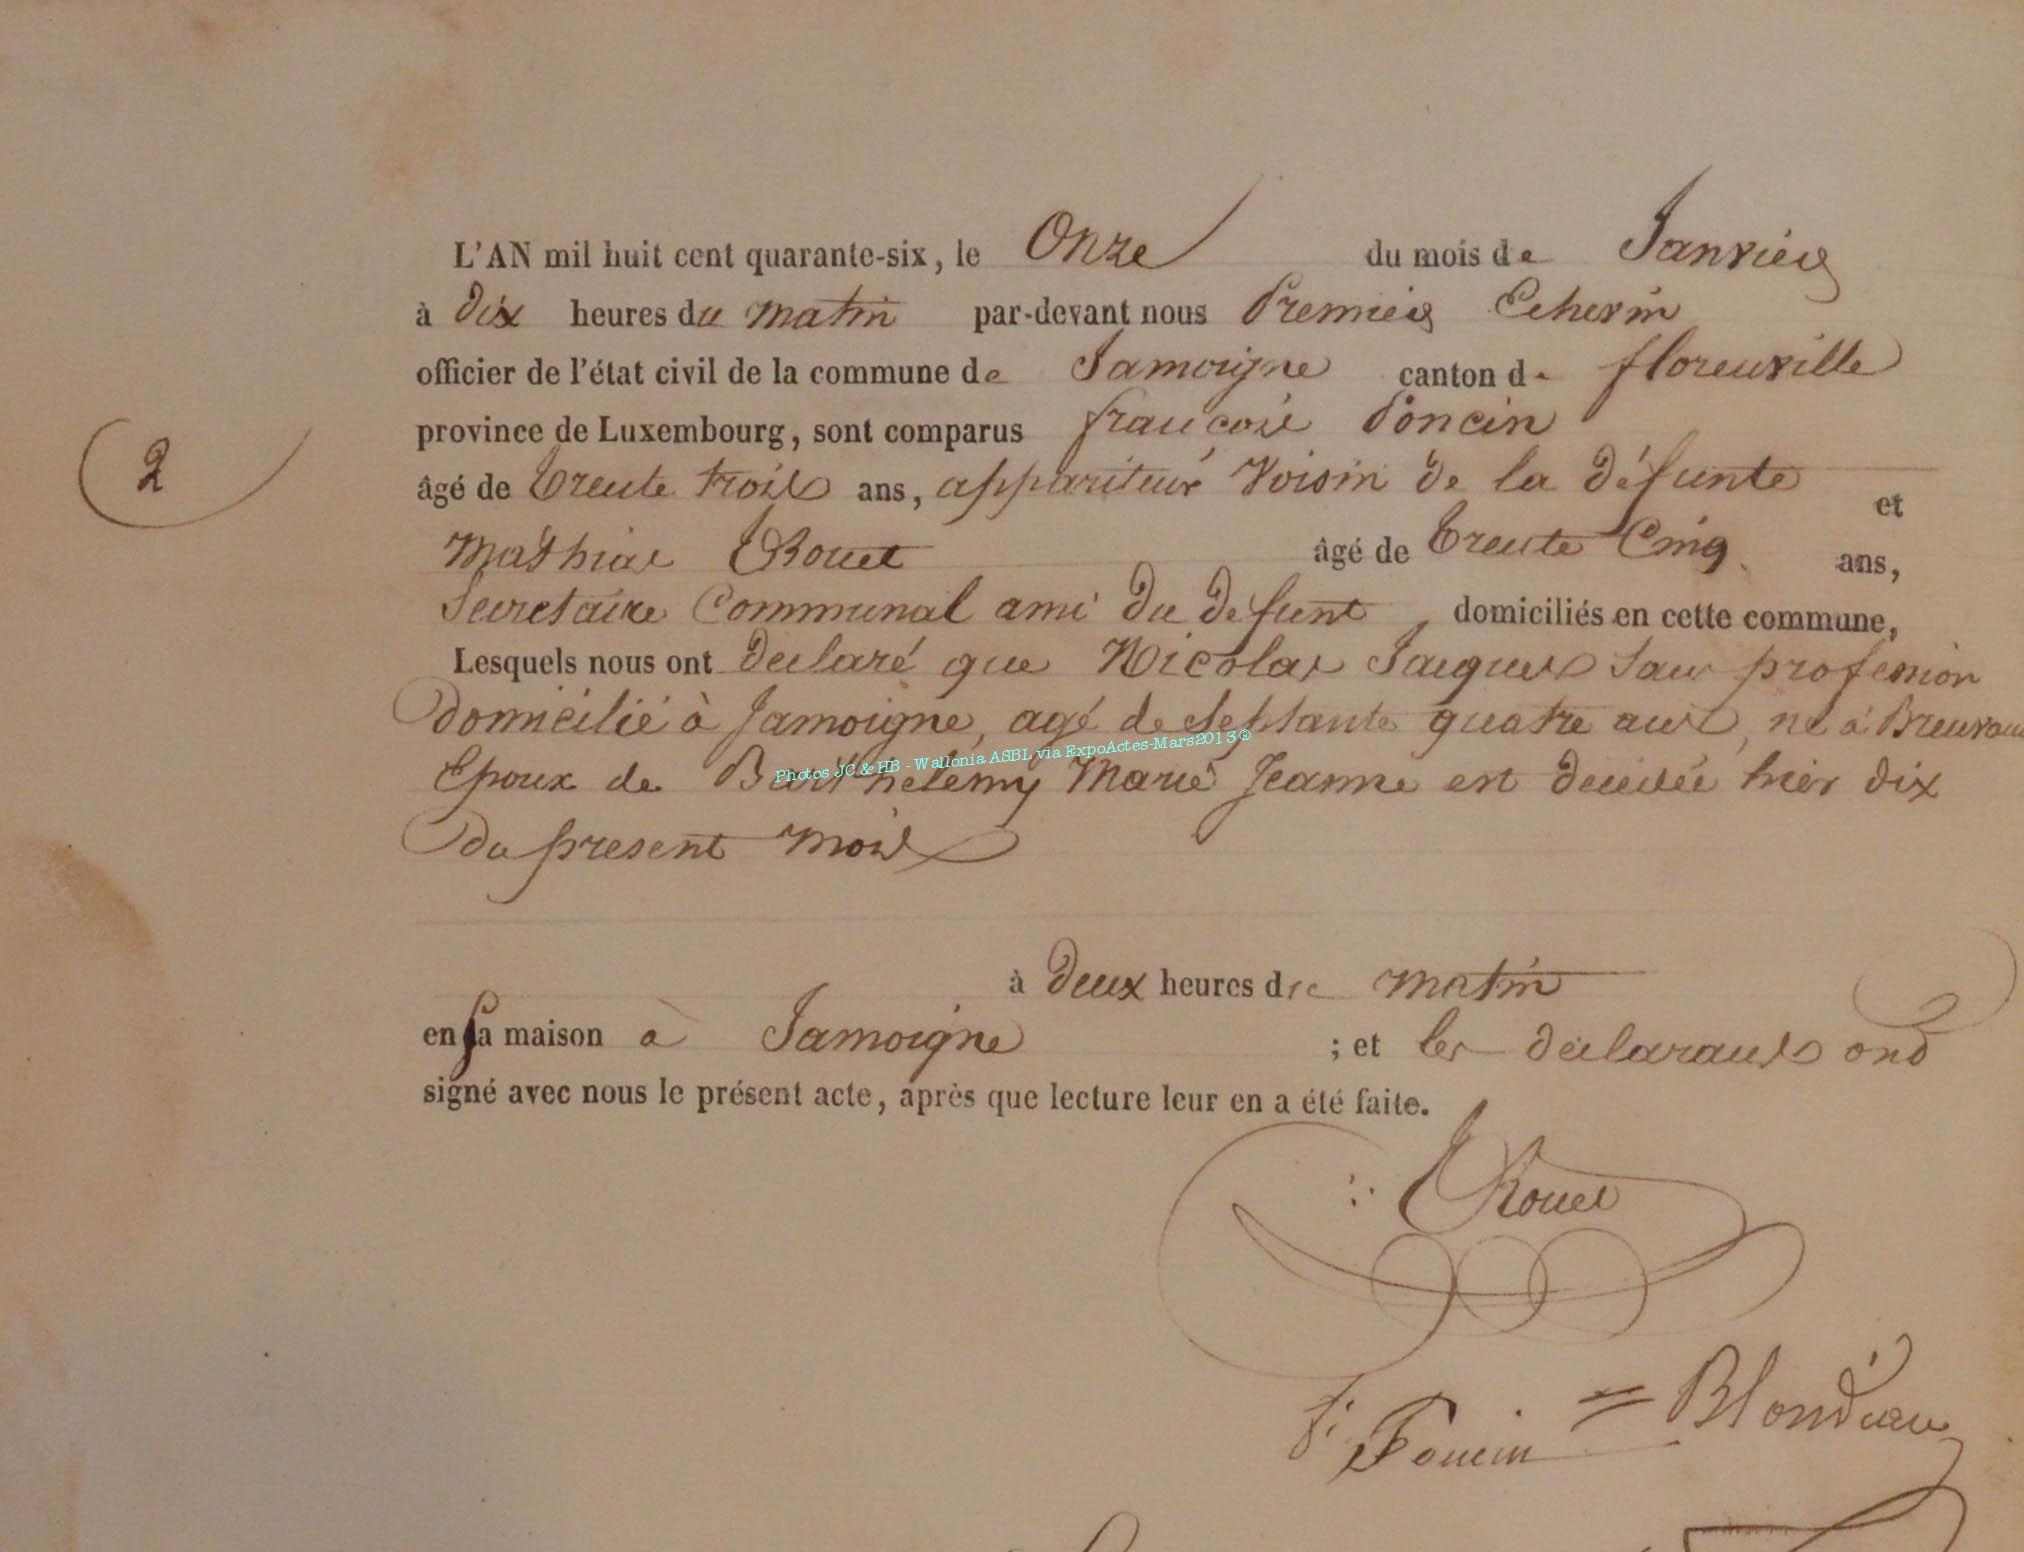 L'AN mil huit cent quarante-six, le Onze du mois de Janvier
à dix heures du matin par-devant nous Premier Echevin
officier de l'état civil de la commune de Jamoigne canton de florenville
province de Luxembourg, sont comparus françois Poncin
âgé de trente trois ans, appariteur Voisin de la défunte et
Mathias Rouet âgé de trente Cinq ans,
Secretaire Communal ami du defunt domiciliés en cette commune,
2
Lesquels nous ont declaré que Nicolas Jacques sans profession
domicilié à Jamoigne, agé de septante quatre ans, né à Breuvanne
Epoux de Barthelemy Marie Jeanne est decedée hier dix
Photos JC & HB - Wallonia ASBL via ExpoActes-Mars2013©
du present mois
à deux heures du matin
en sa maison à Jamoigne ; et les declarants ont
signé avec nous le présent acte, après que lecture leur en a été faite.
Rouet
f. Poncin = Blondeau